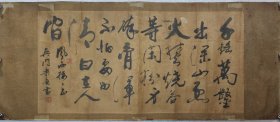 千鎚萬鑿
出深山烈
火焚燒若
等閒粉身
碎骨渾
不怕要留
清白在人
間